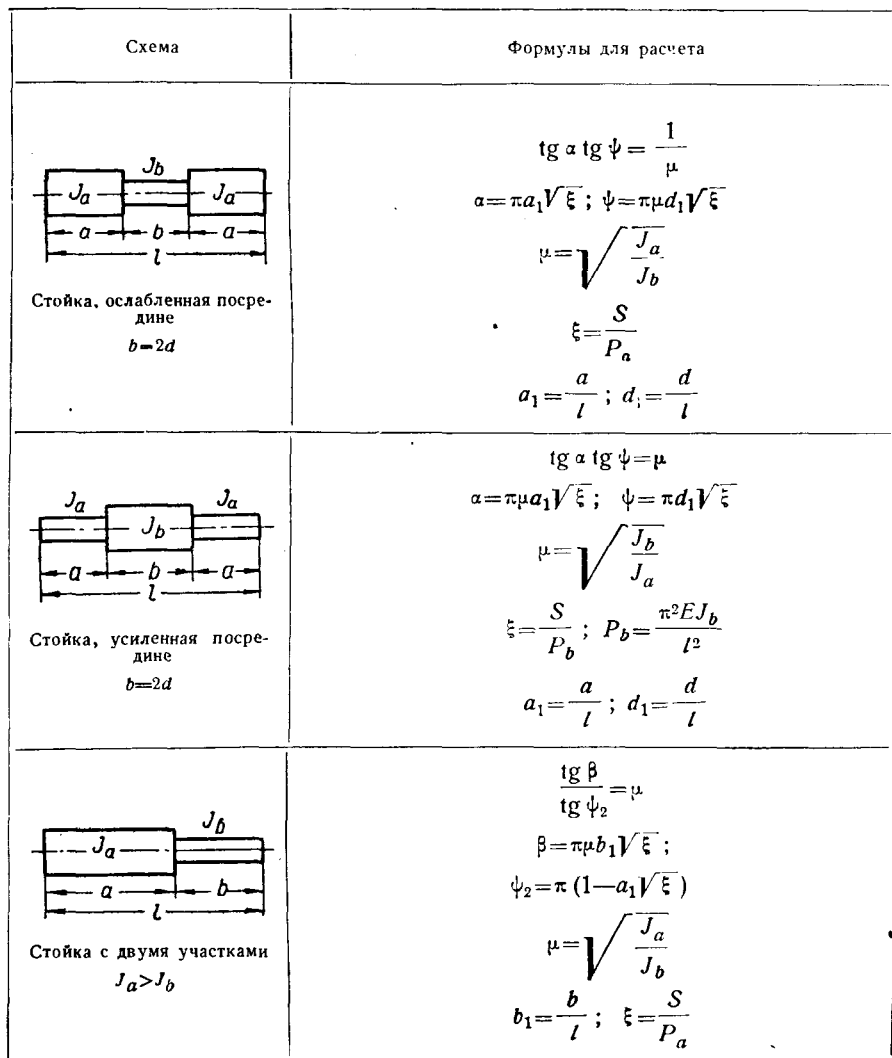 Схема
Формулы для расчета
J_b
J_a J_a
a b a
l
Стойка, ослабленная посре-
дине
b=2d
tg α tg ψ = 1/μ
α=πa₁√ξ; ψ=πμd₁√ξ
μ=√(J_a/J_b)
ξ=S/P_a
a₁=a/l; d₁=d/l
J_a J_a
J_b
a b a
l
Стойка, усиленная посре-
дине
b=2d
tg α tg ψ=μ
α=πμa₁√ξ; ψ=πd₁√ξ
μ=√(J_b/J_a)
ξ=S/P_b; P_b=π²EJ_b/l²
a₁=a/l; d₁=d/l
J_b
J_a
a b
l
Стойка с двумя участками
J_a>J_b
tg β/tg ψ₂=μ
β=πμb₁√ξ;
ψ₂=π (1—a₁√ξ)
μ=√(J_a/J_b)
b₁=b/l; ξ=S/P_a